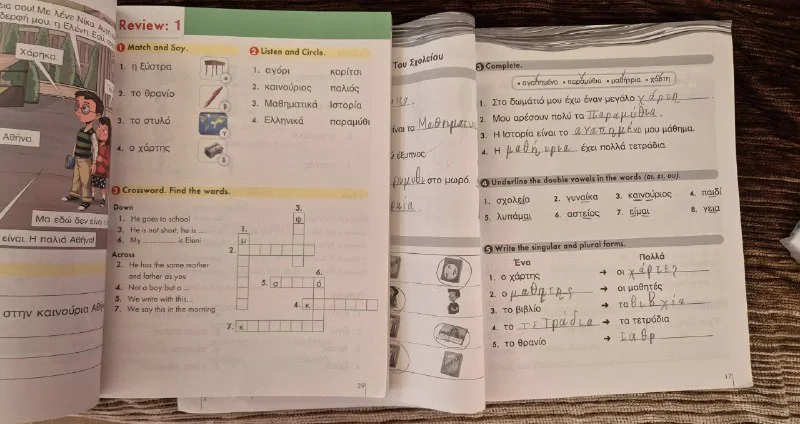 εια σου! Με λένε Νίκο. Αυτή
δερφή μου, η Ελένη. Εσύ
Χάρηκα.
Αθήνα.
Μα εδώ δεν είναι
είναι. Η παλιά Αθήνα!
στην καινούρια Αθή
Review: 1
1 Match and Say.
1. η ξύστρα
α
2. το θρανίο
β
3. το στυλό
γ
4. ο χάρτης
δ
2 Listen and Circle.
1. αγόρι κορίτσι
2. καινούριος παλιός
3. Μαθηματικά Ιστορία
4. Ελληνικά παραμύθι
3 Crossword. Find the words.
Down
1. He goes to school
3. He is not short, he is ...
6. My ................ is Eleni
Across
2. He has the same mother
and father as you
4. Not a boy but a ...
5. We write with this...
7. We say this in the morning
3.
ψ
1.
μ
2.
6.
5. σ ό
4. κ
7. κ
29
Του Σχολείου
ίναι τα Μαθηματικ
ύ εξυπνος.
στο μωρό.
3 Complete.
• αγαπημένο • παραμύθια • μαθήτρια • χάρτη
1. Στο δωμάτιό μου έχω έναν μεγάλο χάρτη
2. Μου αρέσουν πολύ τα Παραμύθια.
3. Η Ιστορία είναι το αγαπημένο μου μάθημα.
4. Η μαθήτρια έχει πολλά τετράδια.
4 Underline the double vowels in the words (αι, ει, ου).
1. σχολείο 2. γυναίκα 3. καινούριος 4. παιδί
5. λυπάμαι 6. αστείος 7. είμαι 8. γεια
5 Write the singular and plural forms.
Ένα Πολλά
1. ο χάρτης → οι χάρτες
2. ο μαθητης → οι μαθητές
3. το βιβλίο → τα
4. το τετράδια → τα τετράδια
5. το θρανίο → ταθρ
17